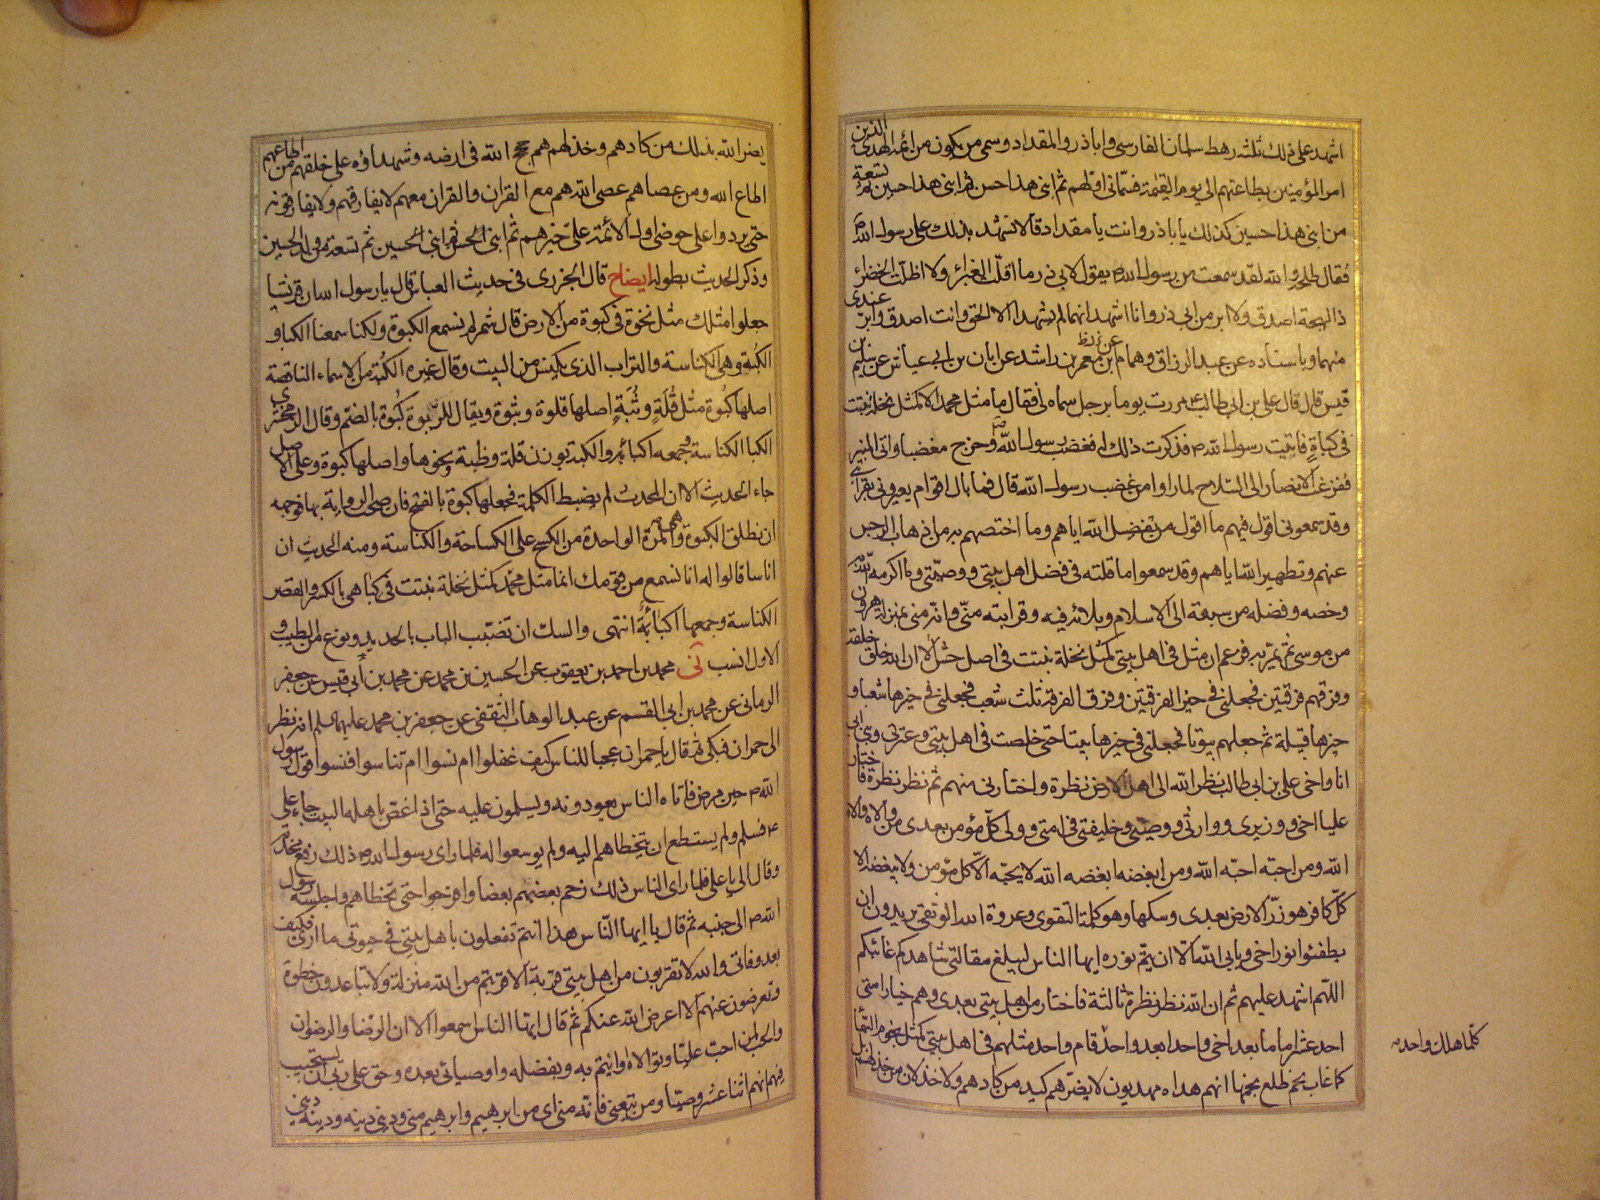 اشهد على ذلك ثلثة رهط سلمان الفارسي واباذر والمقداد وسمى من يكون من ائمة الهدى الذين
امر المؤمنين بطاعتهم الى يوم القيمة فسمانى اولهم ثم ابنى هذا حسن ثم ابنى هذا حسين ثم تسعة
من ابنى هذا حسين كذلك يا باذر وانت يا مقداد قالا نشهد بذلك على رسول الله ص
فقال طلحة والله لقد سمعت من رسول الله ص يقول لابى ذر ما اقلت الغبراء ولا اظلت الخضراء
ذا لهجة اصدق ولا ابر من ابى ذر وانا اشهد انهما لم يشهدا الا الحق وانت اصدق وابر عندى
منهما وباسناده عن عبد الرزاق وهمام عن معمر بن راشد عن ابان بن ابى عياش عن سليم بن
قيس قال قال على بن ابى طالب ع مررت يوما برجل سماه لى فقال ما مثل محمد الا كمثل نخلة نبتت
فى كباة فاتيت رسول الله ص فذكرت ذلك له فغضب رسول الله ص وخرج مغضبا واتى المنبر
ففزعت الانصار الى السلاح لما راوا من غضب رسول الله قال فما بال اقوام يعيرونى بقرابتى
وقد سمعونى اقول فيهم ما اقول من تفضيل الله اياهم وما اختصهم به من اذهاب الرجس
عنهم وتطهير الله اياهم وقد سمعوا ما قلته فى فضل اهل بيتى ووصيتى وما اكرمه الله به
وخصه وفضله من سبقه الى الاسلام وبلائه فيه وقرابته منى وانه منى بمنزلة هرون
من موسى ثم يمر به فزعم ان مثلى فى اهل بيتى كمثل نخلة نبتت فى اصل حش الا ان الله خلق خلقه
وفرقهم فرقتين فجعلنى فى خير الفرقتين وفرق الفرقة ثلث شعب فجعلنى فى خيرها شعبا و
خيرها قبيلة ثم جعلهم بيوتا فجعلنى فى خيرها بيتا حتى خلصت فى اهل بيتى وعترتى وبنى ابى
انا واخى على بن ابى طالب نظر الله الى اهل الارض نظرة واختارنى منهم ثم نظر نظرة فاختار
عليا اخى ووزيرى ووارثى ووصيى وخليفتى فى امتى وولى كل مؤمن بعدى من والاه والاه
الله ومن احبه احبه الله ومن ابغضه ابغضه الله لا يحبه الا كل مؤمن ولا يبغضه الا
كل كافر هو زر الارض بعدى وسكنها وهو كلمة التقوى وعروة الله الوثقى يريدون ان
يطفئوا نور اخى ويابى الله الا ان يتم نوره ايها الناس ليبلغ مقالتى شاهدكم غائبكم
اللهم اشهد عليهم ثم ان الله نظر نظرة ثالثة فاختار من اهل بيتى بعدى وهم خيار امتى
احد عشر اماما بعد اخى واحدا بعد واحد قام واحد مثلهم فى اهل بيتى كمثل نجوم السماء
كلما هلك واحد
كلما غاب نجم طلع نجم انهم هداة مهديون لا يضرهم كيد من كادهم ولا خذلان من خذلهم بل
يضر الله بذلك من كادهم وخذلهم هم حجج الله فى ارضه وشهداؤه على خلقه من اطاعهم
اطاع الله ومن عصاهم عصى الله هم مع القران والقران معهم لا يفارقهم ولا يفارقونه
حتى يردوا على حوضى اول الائمة على خيرهم ثم ابنى الحسن ثم ابنى الحسين ثم تسعة من ولد الحسين
وذكر الحديث بطوله ايضاح قال الجزرى فى حديث العباس قال يا رسول الله ان قريشا
جعلوا مثلك مثل نخلة فى كبوة من الارض قال شمر لم نسمع الكبوة ولكنا سمعنا الكبا و
الكبة وهى الكناسة والتراب الذى يكنس من البيت وقال غيره الكبة من الاسماء الناقصة
اصلها كبوة مثل قلة وثبة اصلها قلوة وثبوة ويقال للربوة كبوة بالضم وقال الزمخشرى
الكبا الكناسة وجمعه اكباء والكبة بوزن قلة وظبة ونحوها واصلها كبوة وعلى الاصل
جاء الحديث الا ان المحدث لم يضبط الكلمة فجعلها كبوة بالفتح فان صحت الرواية بها فوجهه
ان تطلق الكبوة وهى المرة الواحدة من الكسح على الكساحة والكناسة ومنه الحديث ان
اناسا قالوا له انا نسمع من قومك انما مثل محمد كمثل نخلة نبتت فى كبا هى بالكسر والقصر
الكناسة وجمعها اكباء انتهى والسك ان تضبب الباب بالحديد ونوع من الطيب و
الاول انسب نى محمد بن احمد بن يعقوب عن الحسين بن محمد عن محمد بن ابى قيس عن جعفر
الرمانى عن محمد بن ابى القسم عن عبد الوهاب الثقفى عن جعفر بن محمد عليهما السلم انه نظر
الى حمران فبكى ثم قال يا حمران عجبا للناس كيف غفلوا ام نسوا ام تناسوا فنسوا قول رسول
الله ص حين مرض فاتاه الناس يعودونه ويسلمون عليه حتى اذا غص باهله البيت جاء على
ع فسلم ولم يستطع ان يتخطاهم اليه ولم يوسعوا له فلما راى رسول الله ص ذلك رفع مخدته
وقال الى يا على فلما راى الناس ذلك زحم بعضهم بعضا وافرجوا حتى تخطاهم واجلسه رسول
الله ص الى جنبه ثم قال يا ايها الناس هذا انتم تفعلون باهل بيتى فى حيوتى ما ارى فكيف
بعد وفاتى والله لا تقربون من اهل بيتى قربة الا قربتم من الله منزلة ولا تباعدون خطوة
وتعرضون عنهم الا اعرض الله عنكم ثم قال ايها الناس اسمعوا الا ان الرضا والرضوان
والحب لمن احب عليا وتولاه وائتم به وبفضله واوصيائى بعده وحق على ربى ان يستجيب
فيهم انهم اثنا عشر وصيا ومن تبعنى فانه منى انى من ابرهيم وابرهيم منى ودينى دينه ودينه دينى